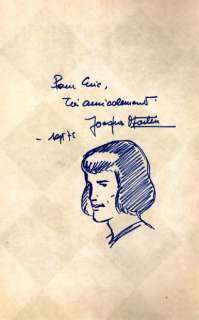 Pour Eric,
Très amicalement.
Jacques Martin
- sept 75